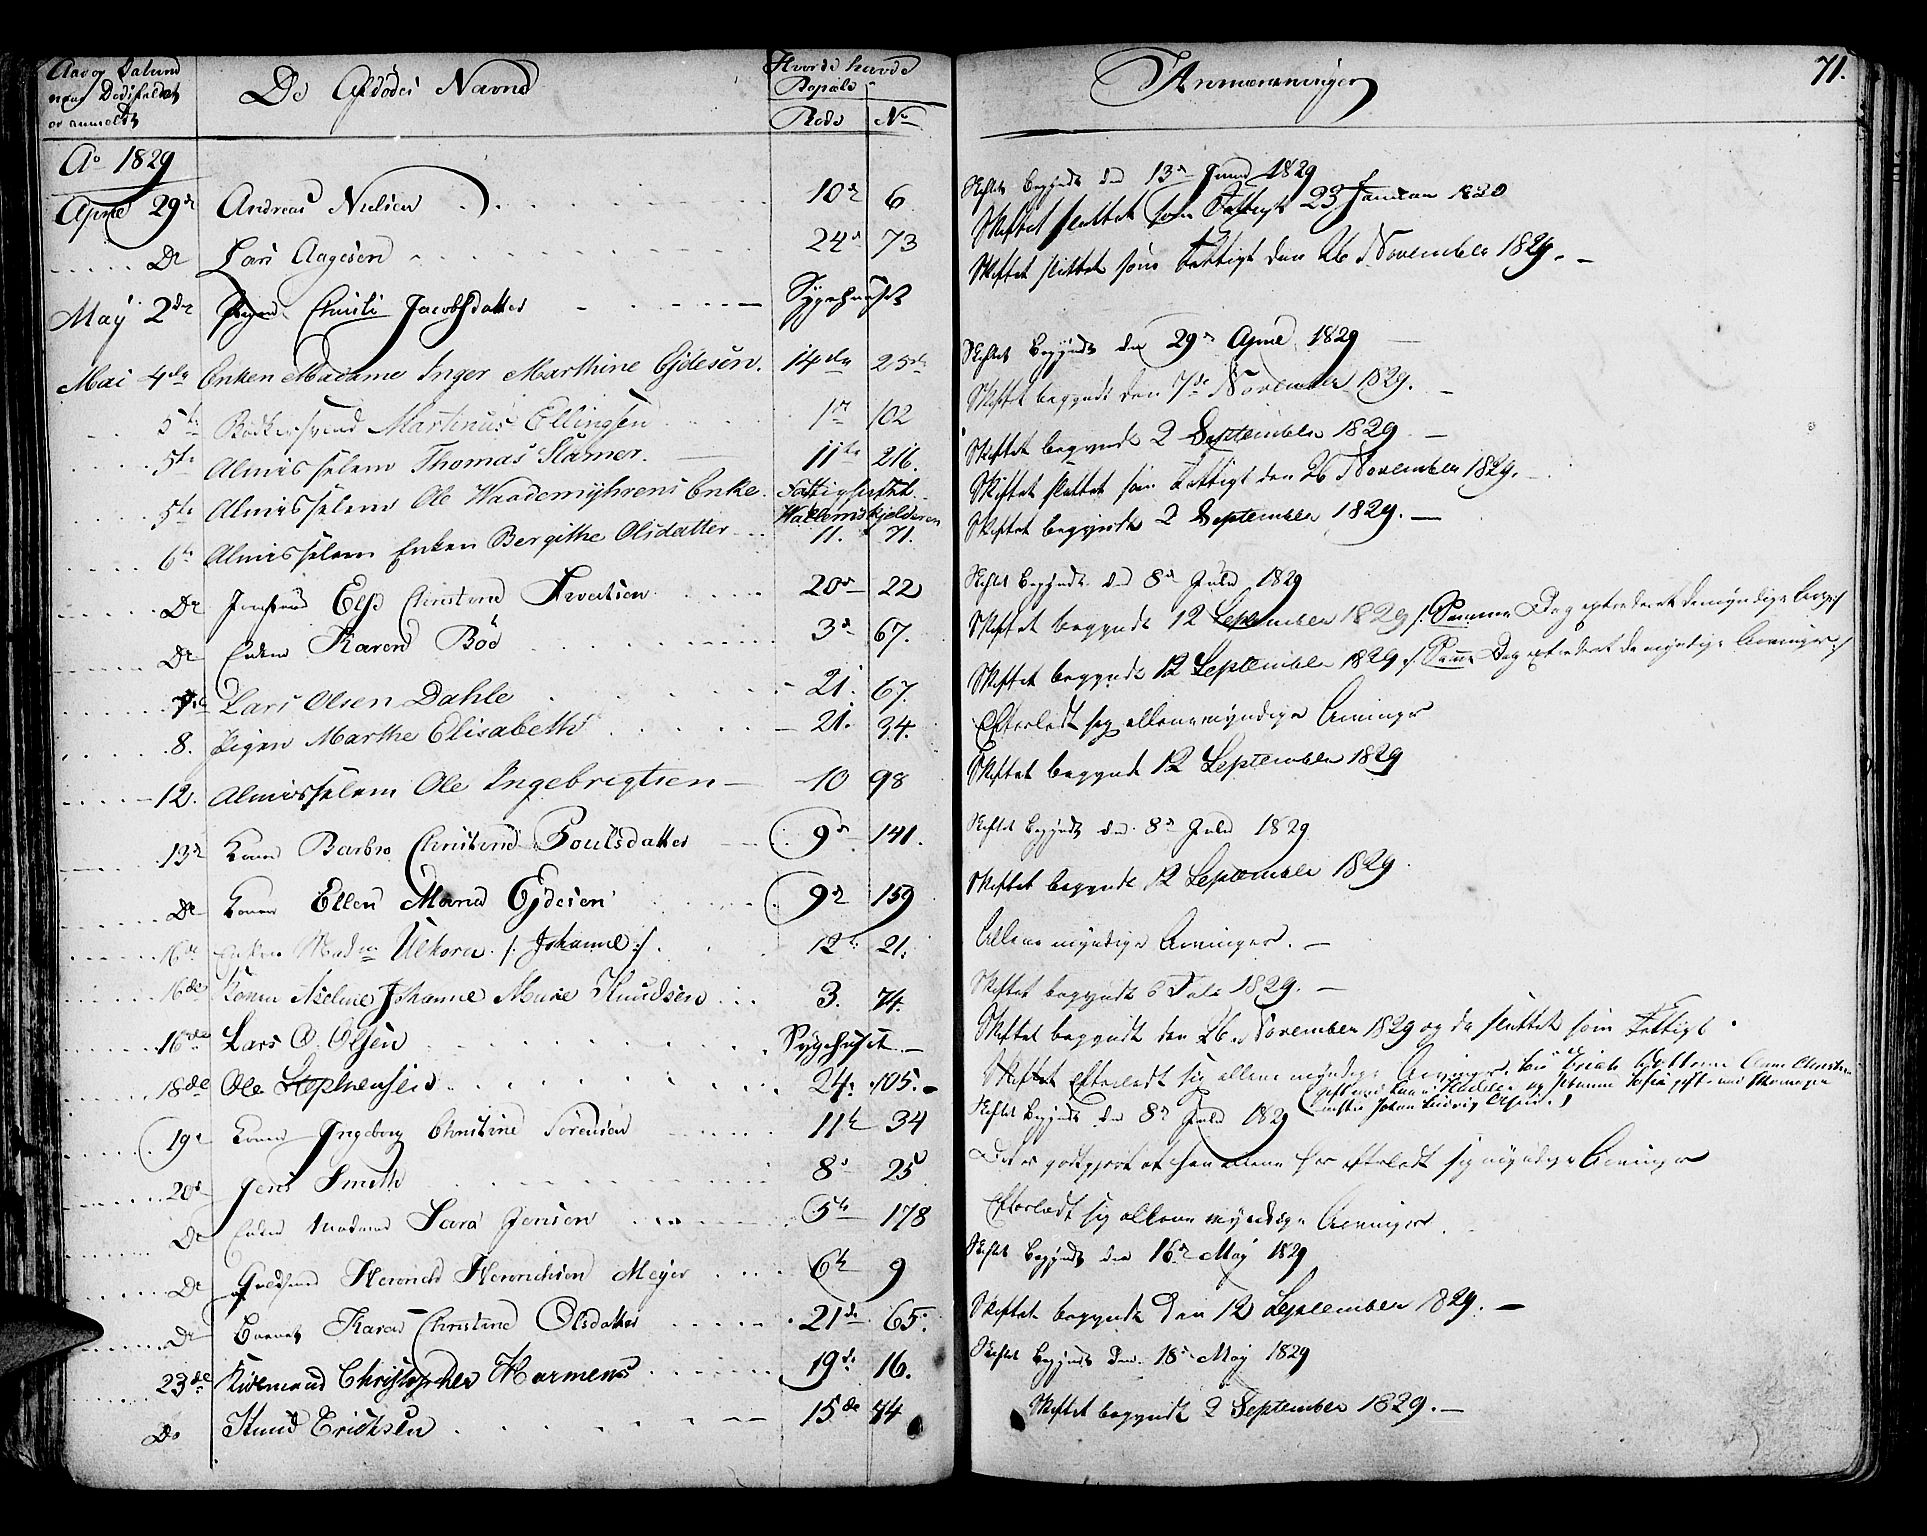 71.
Aar og Datum
naar Dödsfaldet
er anmeldt
De Afdödes Navne
Hvor de havde
Bopæle
Rode No
Anmærkninger
Ao 1829
April 29de Andreas Nielsen 10de 6
Skiftet begyndt den 13de Juni 1829
Skiftet sluttet som Fattigt 23 Januar 1830
Do Lars Aagesen 24de 73
Skiftet sluttet som Fattigt den 26 November 1829.
May 2den Pigen Christi Jacobsdatter Sygehuset
Mai 4de Enken Madame Inger Marthine Ejdesen. 14de 25
Skiftet begyndt den 29de April 1829
5te Bödkersvend Martinus Ellingsen 1ste 102
Skiftet begyndt den 7de November 1829.
5te Almisselem Thomas Stamer. 11te 216.
Skiftet begyndt 2 September 1829.
5te Almisselem Ole Waademyhrens Enke. Fattighuset
Skiftet sluttet som Fattigt den 26 November 1829.
6te Almisselem Enken Bergithe Olsdatter 11. 71.
Skiftet begyndt 2 September 1829.
Do Else Christine 20de 22
Skiftet begyndt den 8de Juli 1829
Do Enken Karen Böe 3de 67.
Skiftet begyndt 12 September 1829 /: Samme Dag extraderet de myndige Arvinger :/
7de Lars Olsen Dahle 21. 67.
Skiftet begyndt 12 September 1829 /: Samme Dag extraderet de myndige Arvinger :/
8. Pigen Marthe Elisabeth 21. 34.
Efterladt sig allene myndige Arvinger
12. Almisselem Ole Ingebrigtsen 10 98
Skiftet begyndt 12 September 1829
13de Konen Barbro Christine Poulsdatter 9de 141.
Skiftet begyndt den 8de Juli 1829
Do Konen Ellen Maria Ejdesen 9de 159
Skiftet begyndt 12 September 1829.
16de Enken Mad. /: Johanne :/ 12te 21.
Allene myndige Arvinger.
16de Konen Johanne Marie Knudsen 3. 74.
Skiftet begyndt 6 Juli 1829.
16de Lars O. Olsen Sygehuset
Skiftet begyndt den 26 November 1829 og da sluttet som Fattigt.
18de Ole Stephensen 24. 105.
Skiftet Efterladt sig allene myndige Arvinger.
19de Konen Ingeborg Christine Sörensen 11te 34
Skiftet begyndt den 8de Juli 1829
20de Jens Smith 8de 25
Det er godtgjort at han allene har efterladt sig myndige Arvinger
Do Enken Madame Sara Jensen 5te 178
Efterladt sig allene myndige Arvinger.
Do Henrich Henrichsen Meyer 6te 9
Skiftet begyndt den 16de May 1829
Do Barnet Karen Christine Olsdatter 21de 65.
Skiftet begyndt den 12 September 1829.
23de Christopher Harmens 19de 16.
Skiftet begyndt den 18de May 1829
Do Knud Erichsen 15de 44
Skiftet begyndt 2 September 1829.